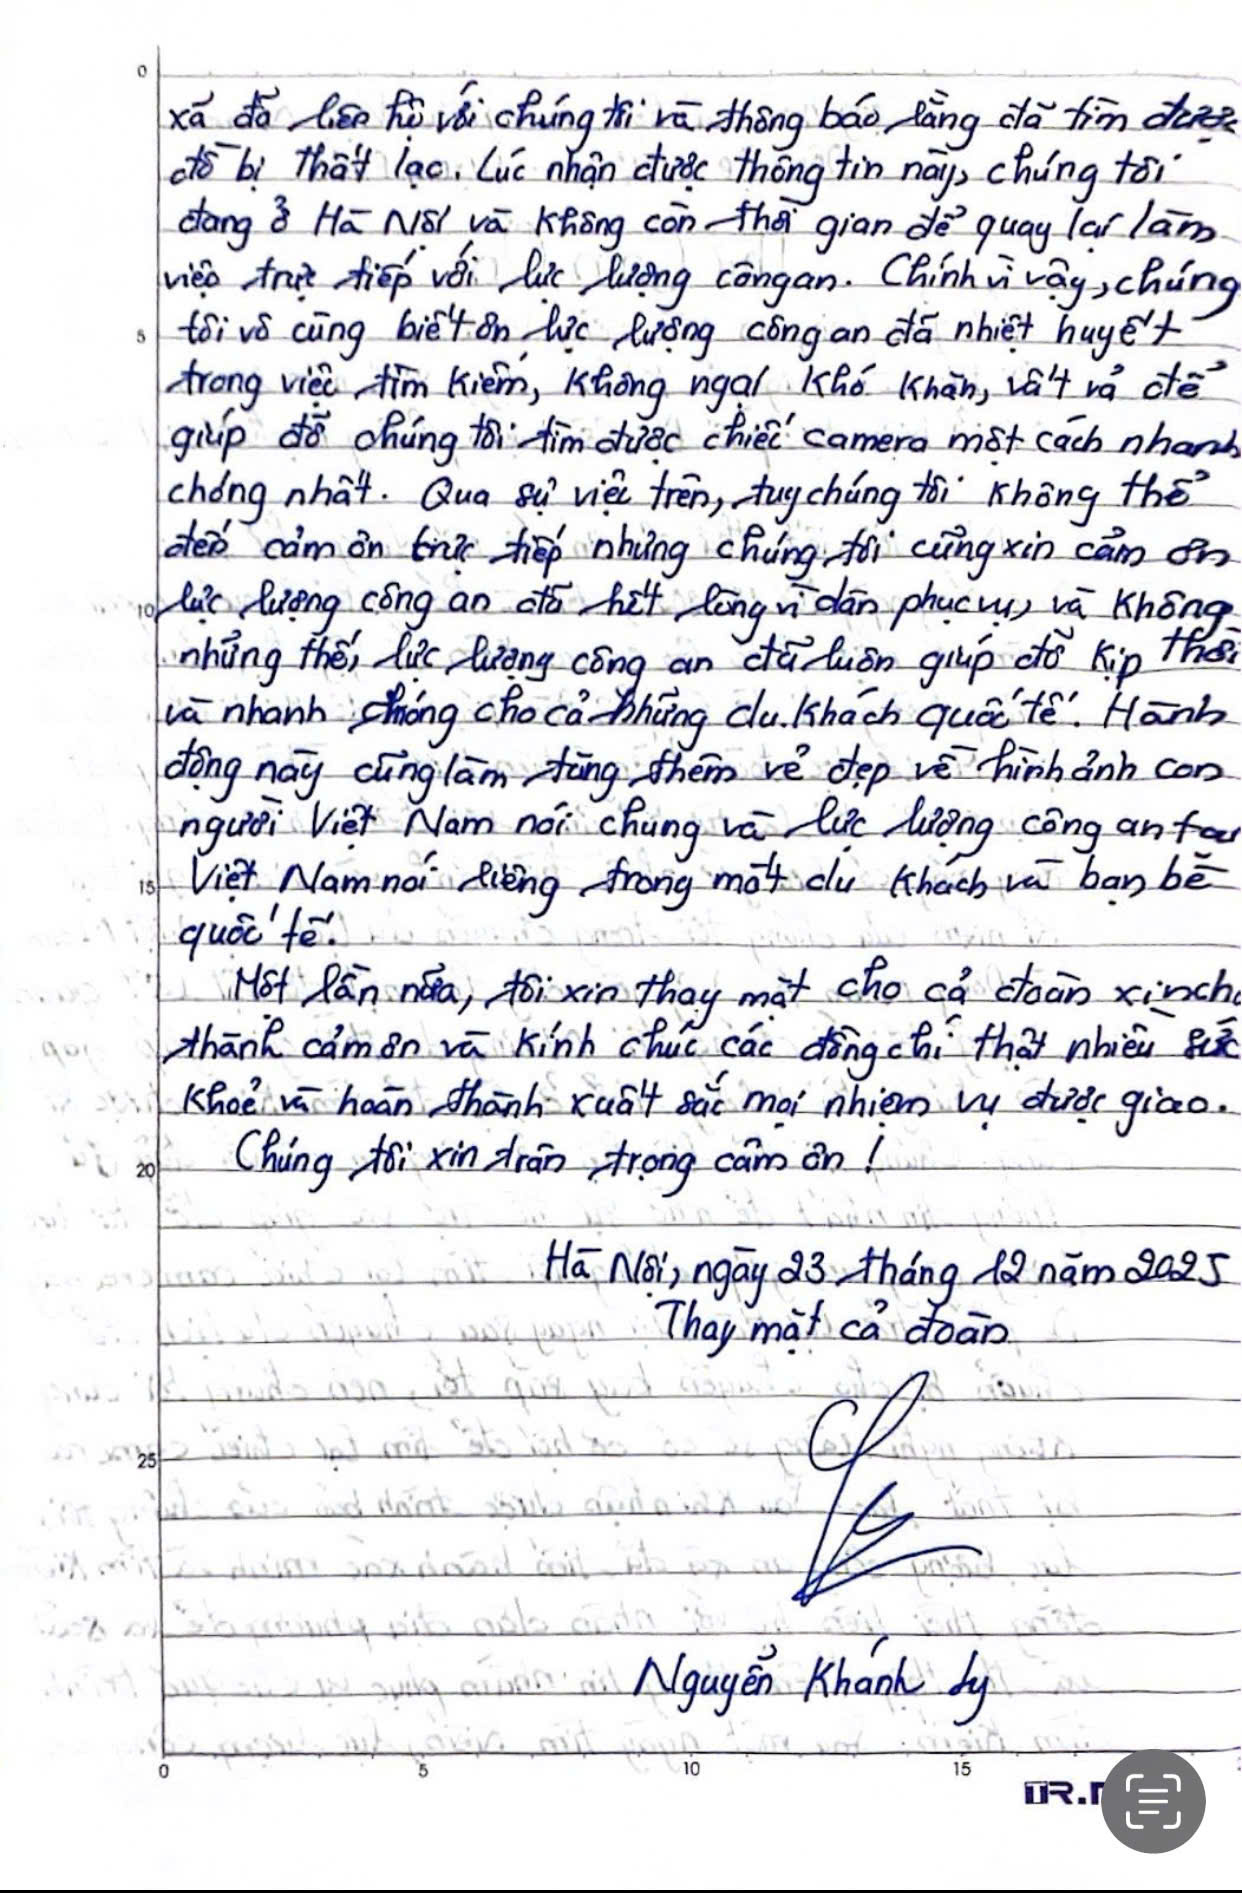 0
xã đã liên hệ với chúng tôi và thông báo rằng đã tìm được
đồ bị thất lạc. Lúc nhận được thông tin này, chúng tôi
đang ở Hà Nội và không còn thời gian để quay lại làm
việc trực tiếp với lực lượng công an. Chính vì vậy, chúng
5 tôi vô cùng biết ơn lực lượng công an đã nhiệt huyết
trong việc tìm kiếm, không ngại khó khăn, vất vả để
giúp đỡ chúng tôi tìm được chiếc camera một cách nhanh
chóng nhất. Qua sự việc trên, tuy chúng tôi không thể
đến cảm ơn trực tiếp nhưng chúng tôi cũng xin cảm ơn
10 lực lượng công an đã hết lòng vì dân phục vụ, và không
những thế, lực lượng công an đã luôn giúp đỡ kịp thời
và nhanh chóng cho cả những du khách quốc tế. Hành
động này cũng làm tăng thêm vẻ đẹp về hình ảnh con
người Việt Nam nói chung và lực lượng công an
15 Việt Nam nói riêng trong mắt du khách và bạn bè
quốc tế.
Một lần nữa, tôi xin thay mặt cho cả đoàn xin
thành cảm ơn và kính chúc các đồng chí thật nhiều sức
khoẻ và hoàn thành xuất sắc mọi nhiệm vụ được giao.
20 Chúng tôi xin trân trọng cảm ơn !
Hà Nội, ngày 23 tháng 12 năm 2025
Thay mặt cả đoàn
25
Nguyễn Khánh Ly
0 5 10 15
TR.